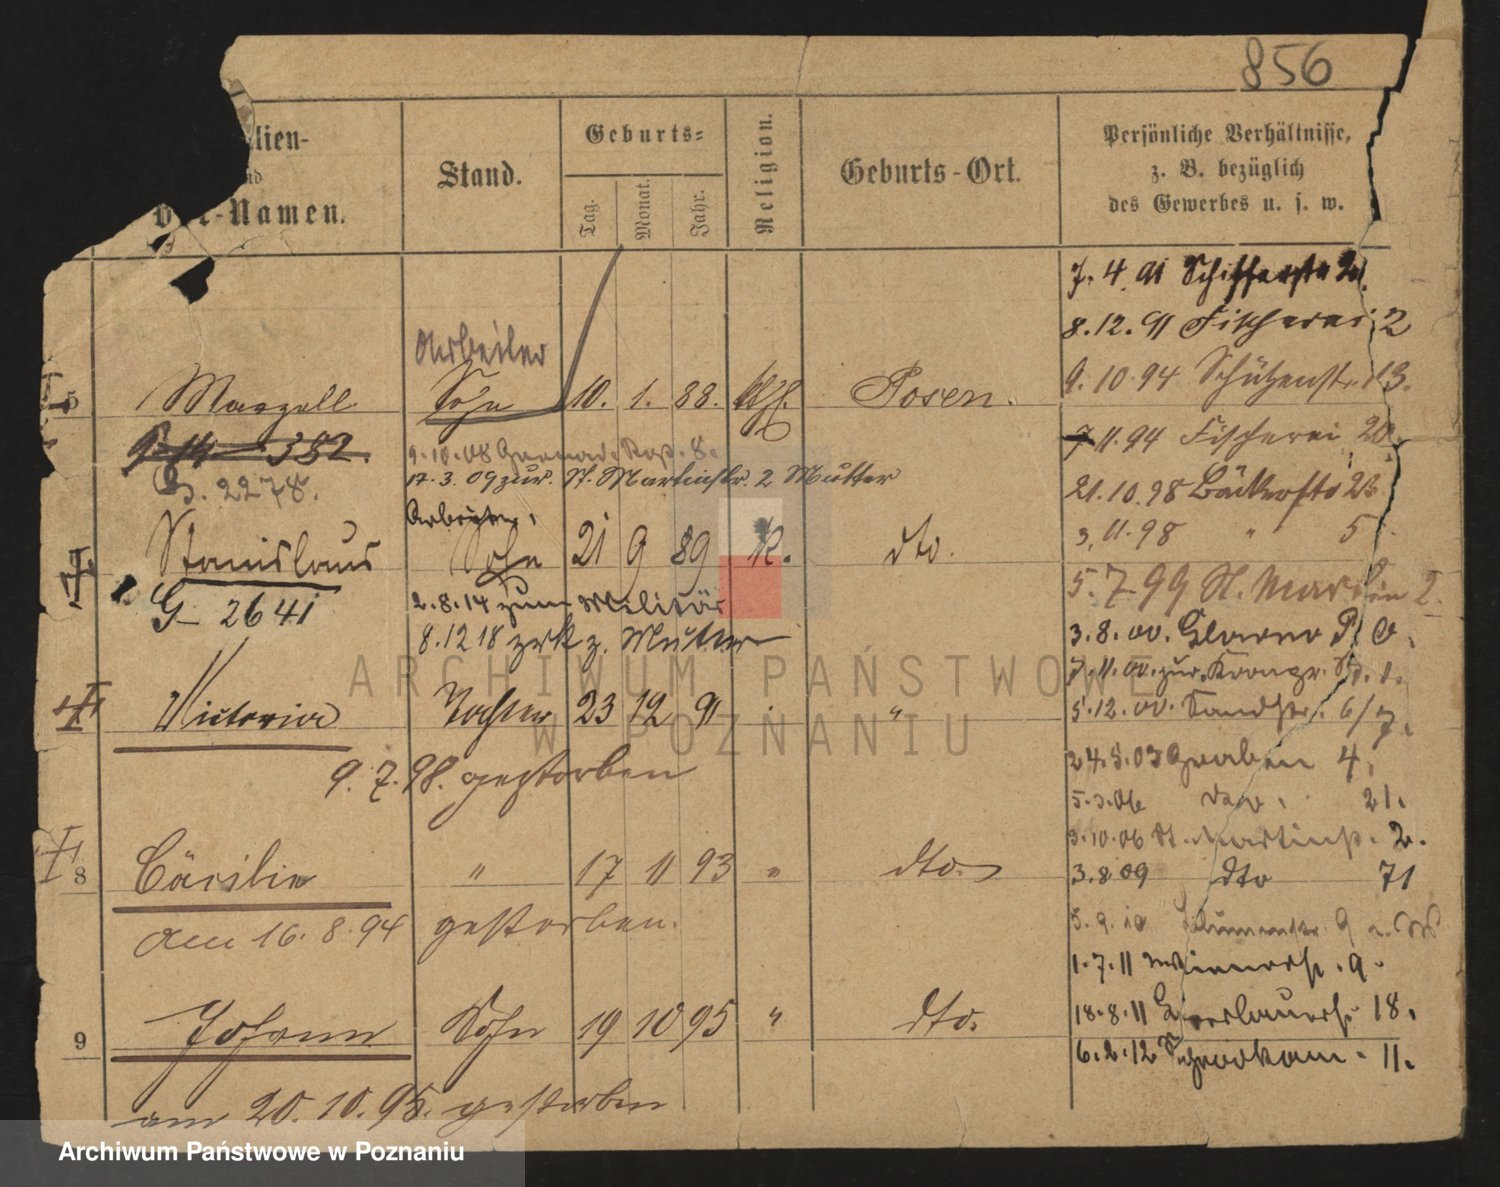 856
lien-
nd
Vor-Namen.
Stand.
Geburts-
Tag.
Monat.
Jahr.
Religion.
Geburts-Ort.
Persönliche Verhältnisse,
z. B. bezüglich
des Gewerbes u. s. w.
7. 4. 91 Schifferstr 21.
8.12.91 Fischerei 2
Arbeiter
9. 10 94 Schützenstr. 13.
5 Marzell Sohn 10. 1. 88. kth. Posen.
G 14 382.
7 11.94 Fischerei 20
9.10.08 Grenad. Regt. 8.
17. 3. 09 zur. St. Martinstr. 2 Mutter
G. 2278.
21.10.98 Bäckerstr 23
Arbeiter,
3. 11. 98 " 5
Stanislaus Sohn 21 9 89 K. dto.
5. 7 99 St. Martin 2.
G 2641
2.8.14 zum Militär
8.12 18 zrk z. Mutter
3. 8. 00.
7. 11. 00. zur. Kronpr. Str. 1.
Victoria Tochter 23 12 91 . "
5. 12. 00. Sandstr. 6/7.
9. 7. 98. gestorben
24.5.03 Graben 4.
5.3.06 21.
3.10.06 St. Martinstr. 2.
8 Cäcilie " 17 11 93 " dto.
3.8 09 dto 71
am 16. 8. 94 gestorben.
5. 9. 10 Blumenstr. 9
1. 7. 11 9.
9 Johann Sohn 19 10 95 " dto.
18.8.11 18.
6.2.12 11.
am 20. 10. 95. gestorben
ARCHIWUM PAŃSTWOWE
W POZNANIU
Archiwum Państwowe w Poznaniu